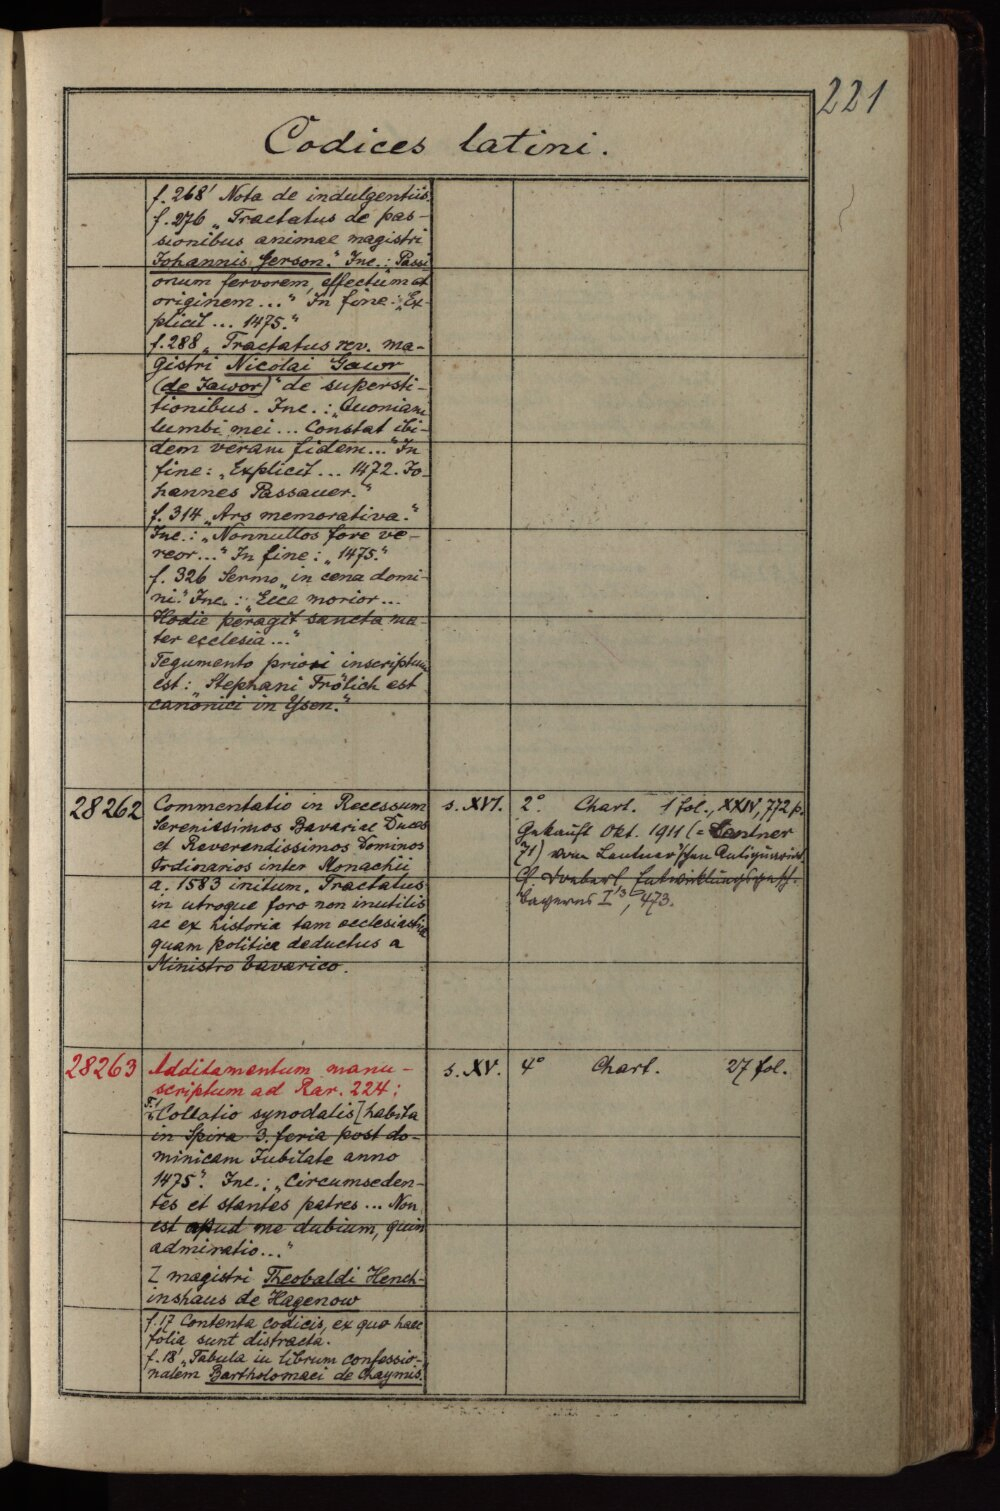 221
Codices latini.
f. 268' Nota de indulgentiis.
f. 276 „Tractatus de pas-
sionibus animae magistri
Johannis Gerson." Inc.: „Passi
onum fervorem, effectum et
originem ..." In fine: „Ex-
plicit ... 1475."
f. 288 „Tractatus rev. ma-
gistri Nicolai Gawr
(de Jawor)" de supersti-
tionibus. Inc.: „Quoniam
lumbi mei ... Constat ibi-
dem veram fidem ..." In
fine: „Explicit ... 1472. Jo-
hannes Passauer."
f. 314 „Ars memorativa."
Inc.: „Nonnullos fore ve-
reor..." In fine: „1475."
f. 326 Sermo „in cena domi-
ni." Inc.: „Ecce morior ...
Hodie peragit sancta ma-
ter ecclesia ..."
Tegumento priori inscriptum
est: „Stephani Frölich est
canonici in Ysen."
28262 Commentatio in Recessum s. XVI. 2° Chart. 1 fol., XXIV, 772 p.
Serenissimos Bavariae Duces Gekauft Okt. 1911 (= Lentner
et Reverendissimos Dominos 71) vom Lentner'schen Antiquariat
Ordinarios inter Monachii Cf. Doeberl Entwicklungsgesch.
a. 1583 initum. Tractatus Bayerns I³, 473.
in utroque foro non inutilis
ac ex historia tam ecclesiastica
quam politica deductus a
Ministro bavarico.
28263 Additamentum manu- s. XV. 4° Chart. 27 fol.
scriptum ad Rar. 224:
f. 1 „Collatio synodalis [habita
in Spira 3. feria post do-
minicam Jubilate anno
1475". Inc.: „Circumseden-
tes et stantes patres ... Non
est apud me dubium, quin
admiratio ..."
[ magistri Theobaldi Hench-
inshaus de Hagenow
f. 17 Contenta codicis, ex quo haec
folia sunt distracta.
f. 18' „Tabula in librum confessio-
nalem Bartholomaei de Chaymis."